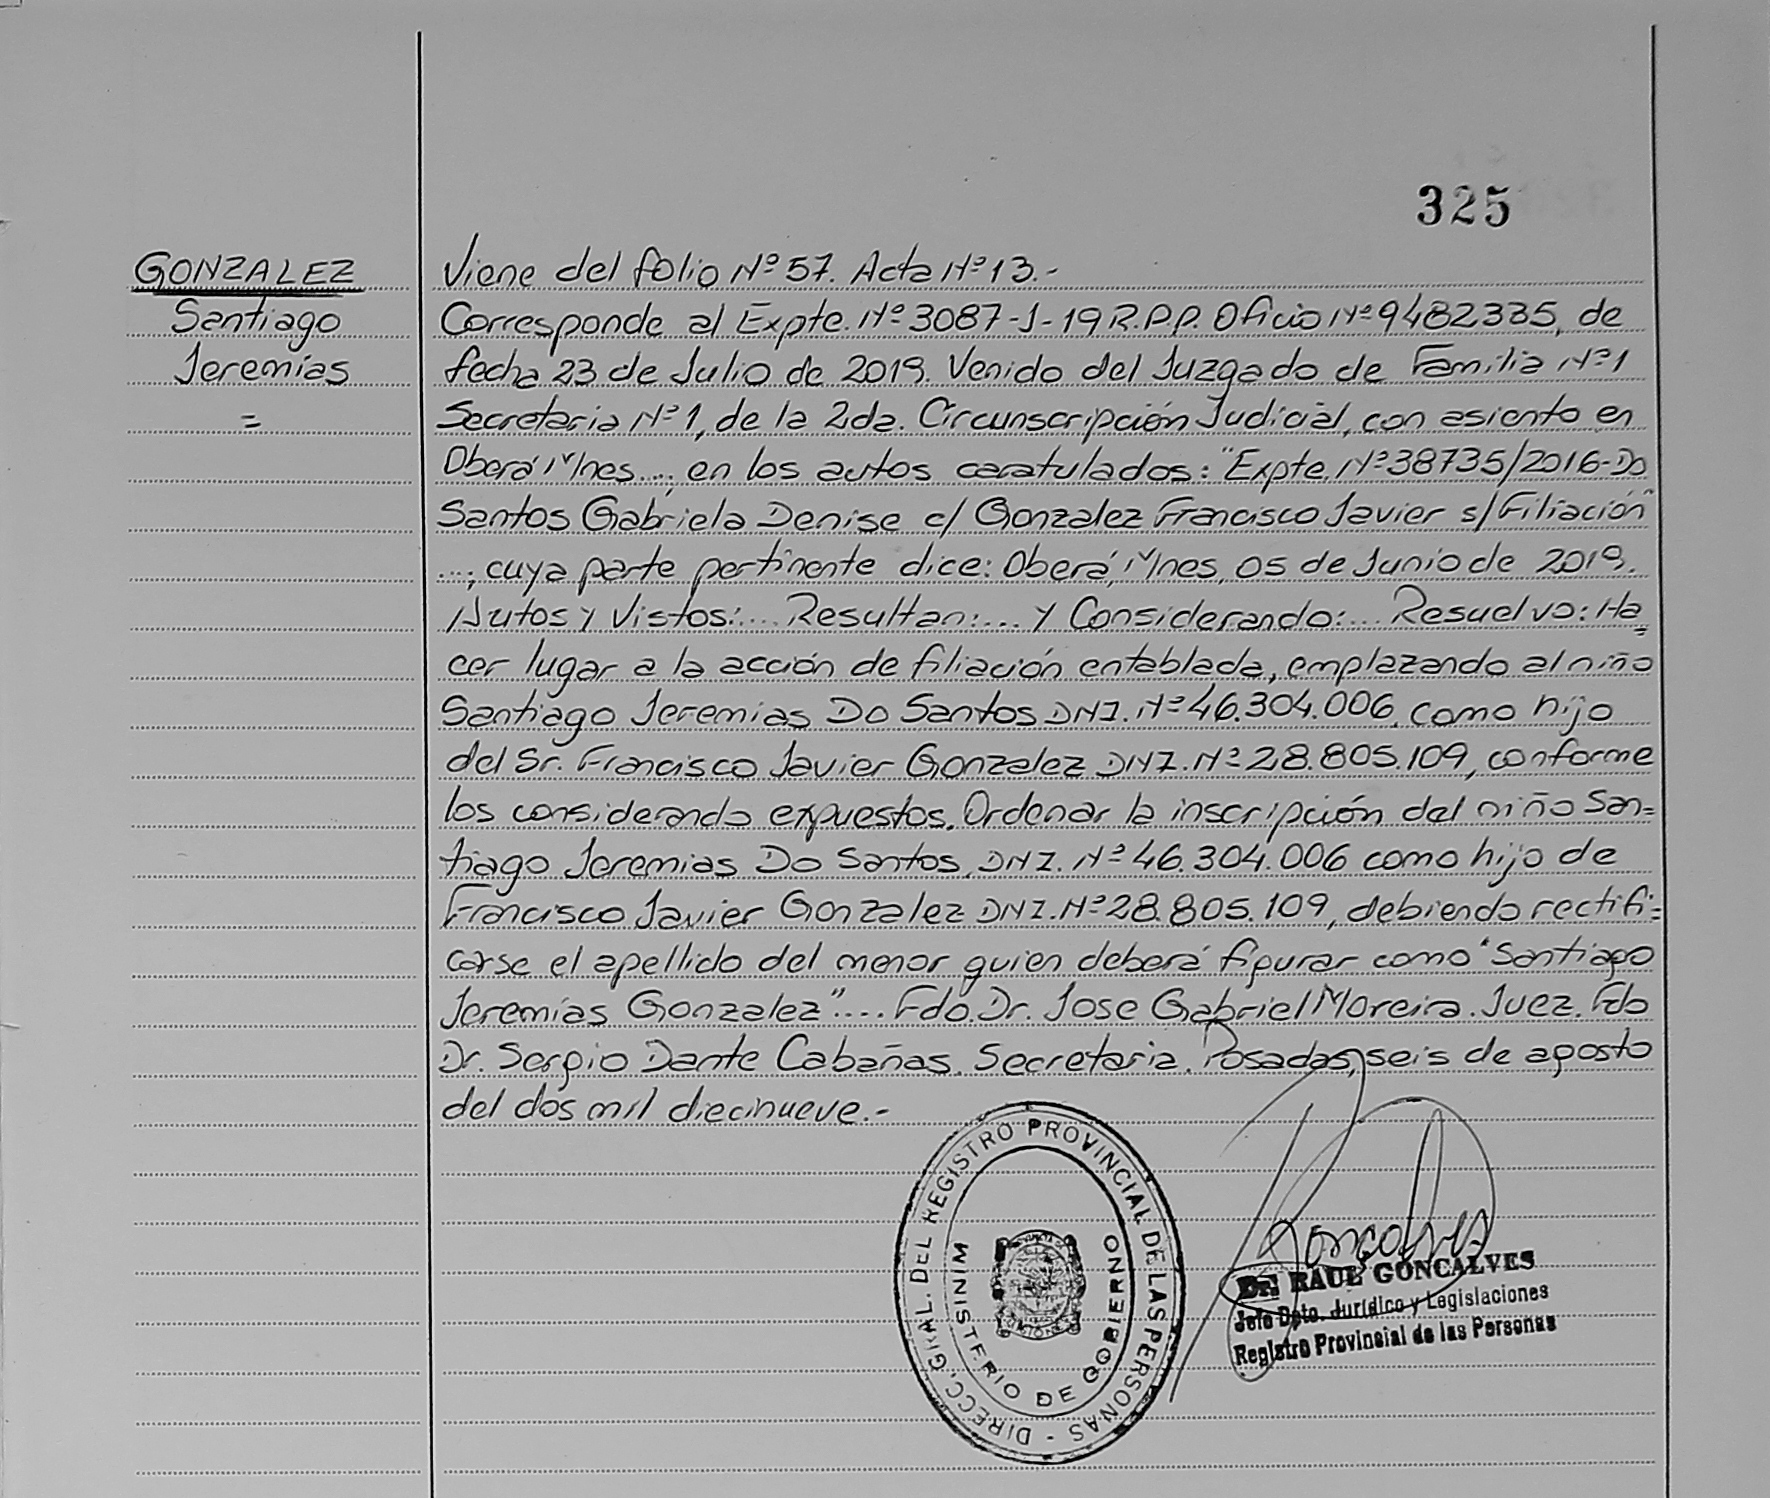 325
GONZALEZ
Santiago
Jeremías
=
Viene del folio Nº 57. Acta Nº 13.-
Corresponde al Expte. Nº 3087-J-19 R.P.P. Oficio Nº 9482335, de
fecha 23 de Julio de 2019. Venido del Juzgado de Familia Nº 1
Secretaria Nº 1, de la 2da. Circunscripción Judicial, con asiento en
Oberá Mnes...; en los autos caratulados: "Expte. Nº 38735/2016-Do
Santos Gabriela Denise c/ Gonzalez Francisco Javier s/ Filiación"
...; cuya parte pertinente dice: Oberá, Mnes, 05 de Junio de 2019.
Autos y Vistos:.... Resultan:.... y Considerando:... Resuelvo: Ha=
cer lugar a la acción de filiación entablada, emplazando al niño
Santiago Jeremias Do Santos DNI. Nº 46.304.006, como hijo
del Sr. Francisco Javier Gonzalez DNI. Nº 28.805.109, conforme
los considerando expuestos. Ordenar la inscripción del niño San=
tiago Jeremias Do Santos, DNI. Nº 46.304.006 como hijo de
Francisco Javier Gonzalez DNI. Nº 28.805.109, debiendo rectifi=
carse el apellido del menor quien deberá figurar como "Santiago
Jeremías Gonzalez".... Fdo. Dr. Jose Gabriel Moreira. Juez. Fdo
Dr. Sergio Dante Cabañas. Secretaria. Posadas, seis de agosto
del dos mil diecinueve.-
DIRECC. GRAL. DEL REGISTRO PROVINCIAL DE LAS PERSONAS -
MINISTERIO DE GOBIERNO
Goncalves
Dr. RAUL GONCALVES
Jefe Dpto. Jurídico y Legislaciones
Registro Provincial de las Personas